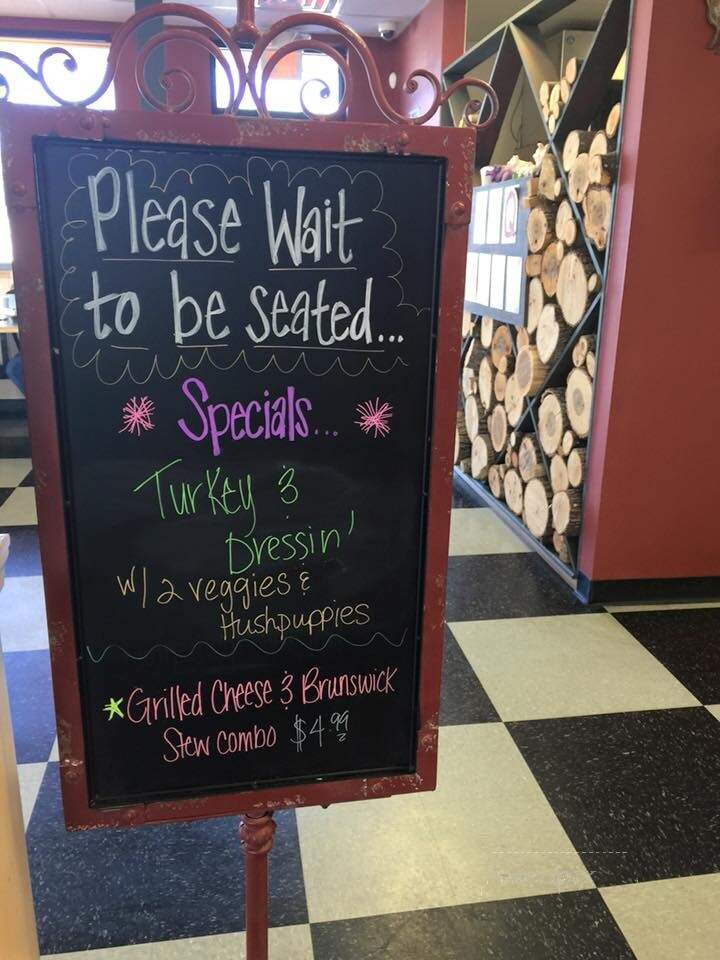 Please Wait
to be seated...
Specials...
Turkey &
Dressin'
w/ 2 veggies &
Hushpuppies
Grilled Cheese & Brunswick
Stew combo $4.99